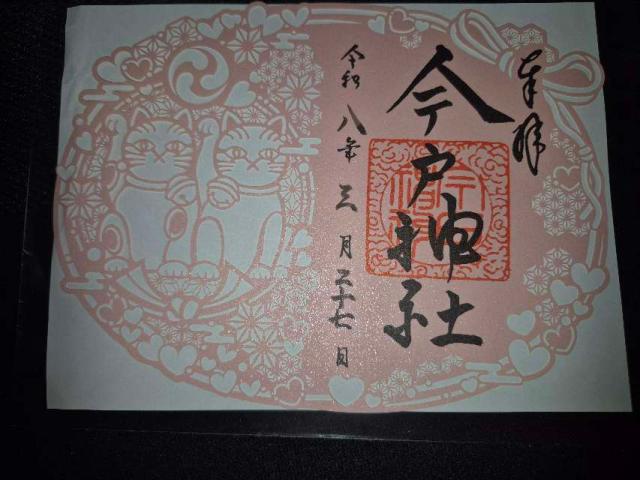 奉拝
今戸神社
令和八年三月二十七日